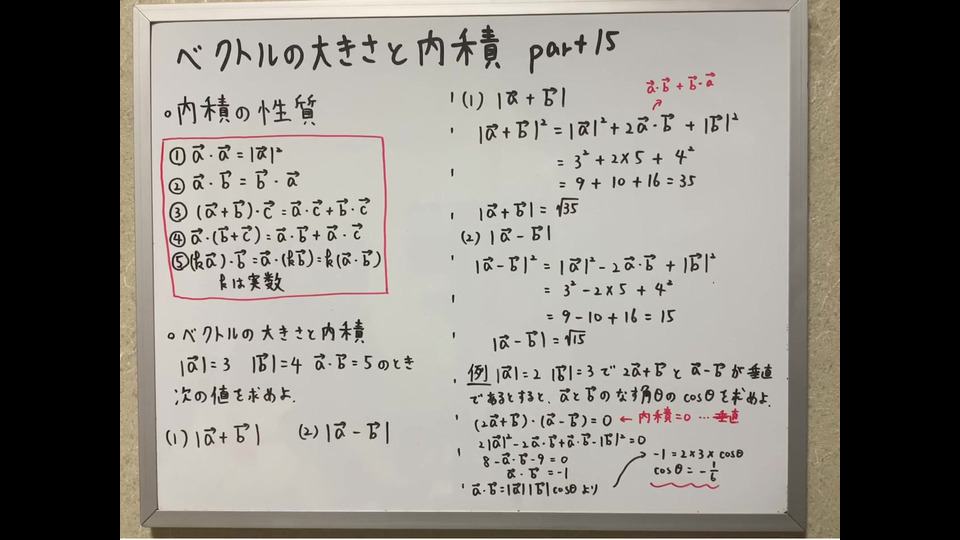 ベクトルの大きさと内積 part 15
○内積の性質
① a⃗・a⃗ = |a⃗|²
② a⃗・b⃗ = b⃗・a⃗
③ (a⃗+b⃗)・c⃗ = a⃗・c⃗ + b⃗・c⃗
④ a⃗・(b⃗+c⃗) = a⃗・b⃗ + a⃗・c⃗
⑤ (ka⃗)・b⃗ = a⃗・(kb⃗) = k(a⃗・b⃗)
kは実数
○ベクトルの大きさと内積
|a⃗|=3 |b⃗|=4 a⃗・b⃗=5のとき
次の値を求めよ.
(1) |a⃗+b⃗| (2) |a⃗-b⃗|
(1) |a⃗+b⃗|
a⃗・b⃗ + b⃗・a⃗
|a⃗+b⃗|² = |a⃗|² + 2a⃗・b⃗ + |b⃗|²
= 3² + 2×5 + 4²
= 9 + 10 + 16 = 35
|a⃗+b⃗| = √35
(2) |a⃗-b⃗|
|a⃗-b⃗|² = |a⃗|² - 2a⃗・b⃗ + |b⃗|²
= 3² - 2×5 + 4²
= 9 - 10 + 16 = 15
|a⃗-b⃗| = √15
例 |a⃗|=2 |b⃗|=3で 2a⃗+b⃗と a⃗-b⃗が垂直
であるとすると、a⃗とb⃗のなす角θのcosθを求めよ.
(2a⃗+b⃗)・(a⃗-b⃗)=0 ← 内積=0 … 垂直
2|a⃗|²-2a⃗・b⃗+a⃗・b⃗-|b⃗|²=0
8-a⃗・b⃗-9=0
a⃗・b⃗=-1
a⃗・b⃗=|a⃗||b⃗|cosθより
→ -1=2×3×cosθ
cosθ=-1/6